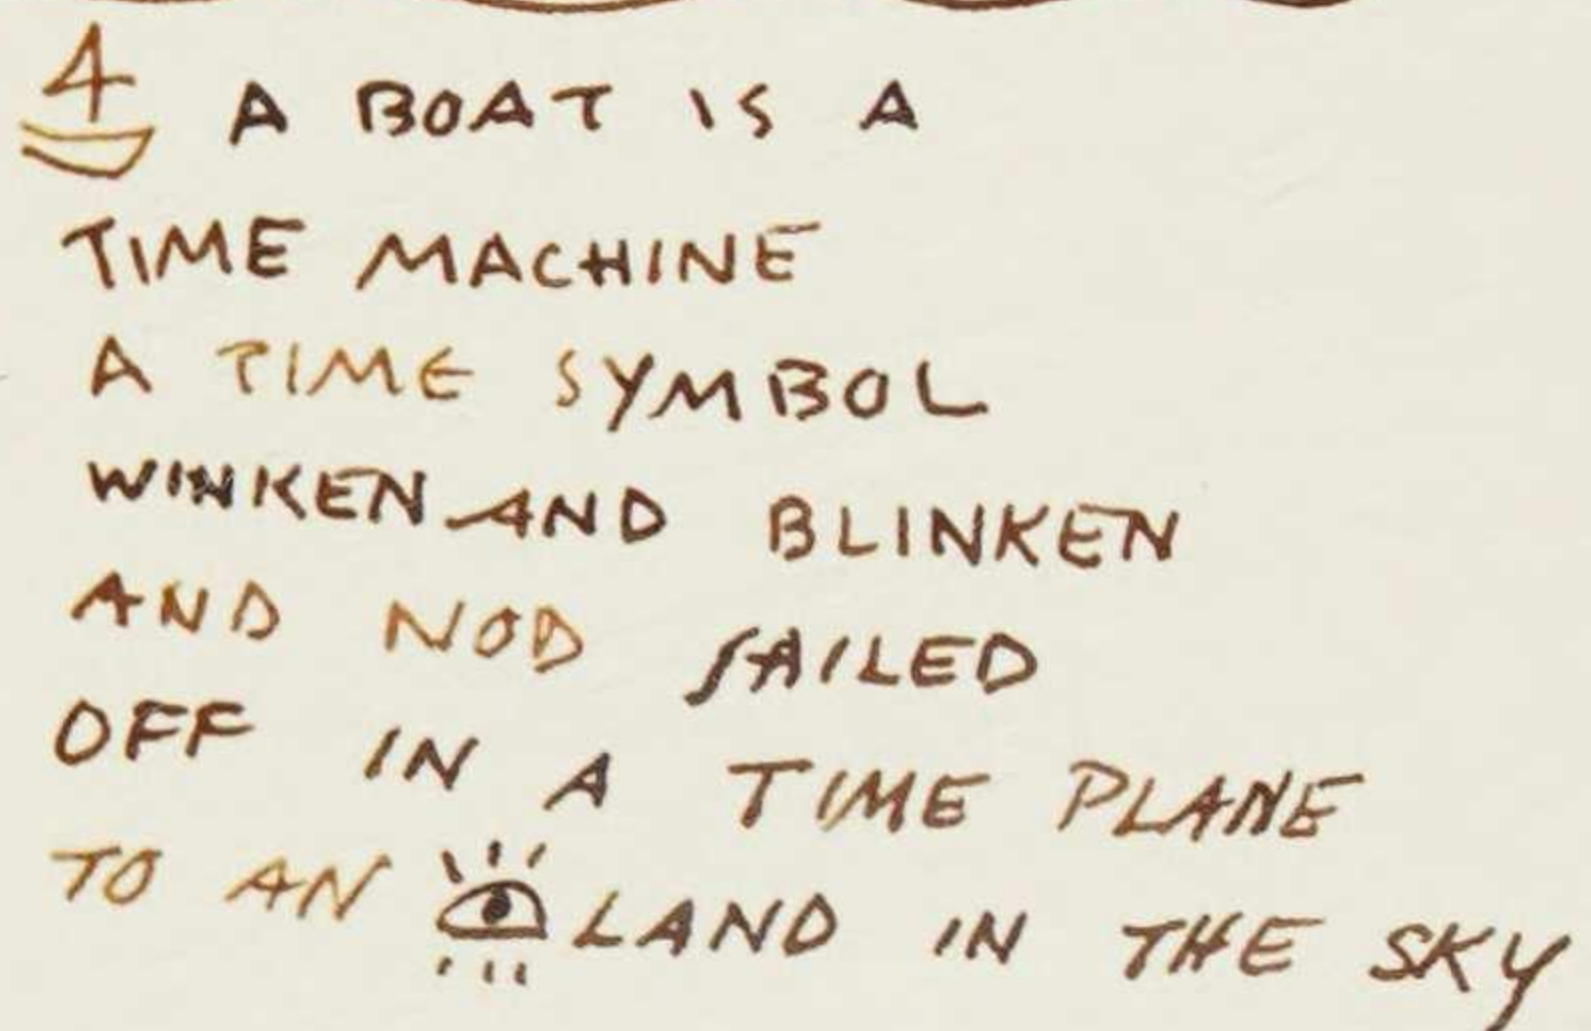 A BOAT IS A
TIME MACHINE
A TIME SYMBOL
WINKEN AND BLINKEN
AND NOD SAILED
OFF IN A TIME PLANE
TO AN LAND IN THE SKY